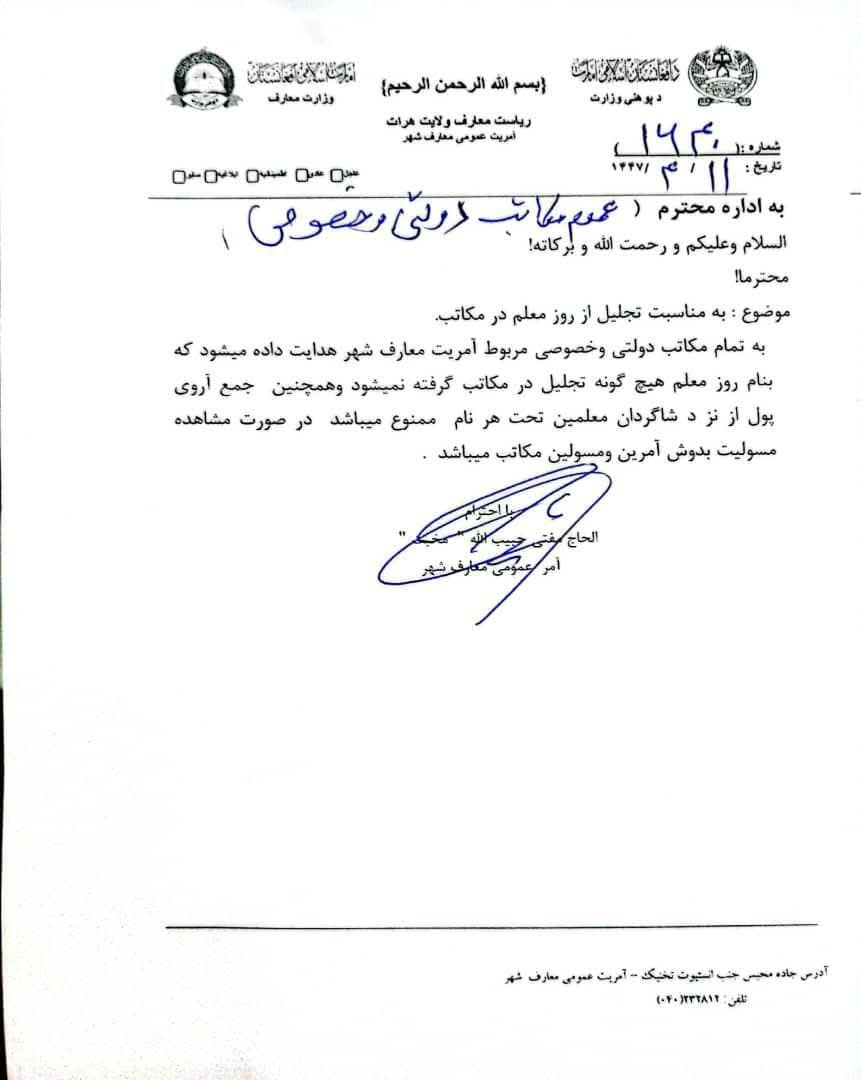 د افغانستان اسلامي امارت
د پوهنې وزارت
{بسم الله الرحمن الرحیم}
ریاست معارف ولایت هرات
آمریت عمومی معارف شهر
امارت اسلامی افغانستان
وزارت معارف
شماره :( )
تاریخ : ۱۱ / ۴ /۱۴۴۷
عاجل
به اداره محترم ( عموم مکاتب دولتی و خصوصی )
السلام وعلیکم و رحمت الله و برکاته!
محترما!
موضوع : به مناسبت تجلیل از روز معلم در مکاتب.
به تمام مکاتب دولتی وخصوصی مربوط آمریت معارف شهر هدایت داده میشود که
بنام روز معلم هیچ گونه تجلیل در مکاتب گرفته نمیشود وهمچنین جمع آروی
پول از نز د شاگردان معلمین تحت هر نام ممنوع میباشد در صورت مشاهده
مسولیت بدوش آمرین ومسولین مکاتب میباشد .
با احترام
الحاج مفتی حبیب الله
آمر عمومی معارف شهر
آدرس جاده محبس جنب انستیوت تخنیک – آمریت عمومی معارف شهر
تلفن : ۲۳۲۸۱۲(۰۴۰)